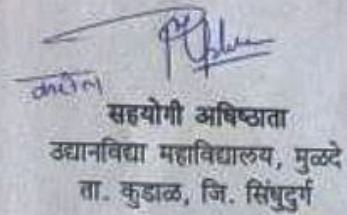 करीता
सहयोगी अधिष्ठाता
उद्यानविद्या महाविद्यालय, मुळदे
ता. कुडाळ, जि. सिंधुदुर्ग